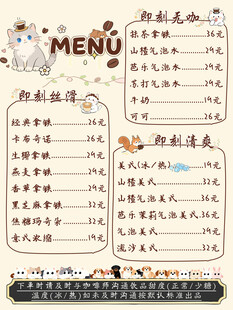 MENU
即刻无咖
抹茶拿铁……36元
山楂气泡水……29元
芭乐气泡水……29元
苏打气泡水……29元
牛奶……19元
可可……26元
即刻丝滑
经典拿铁……26元
卡布奇诺……26元
生椰拿铁……29元
燕麦拿铁……29元
香草拿铁……29元
黑芝麻拿铁……32元
焦糖玛奇朵……32元
意式浓缩……19元
即刻清爽
美式(冰/热)……19元
山楂美式……32元
山楂气泡美式……36元
芭乐茉莉气泡美式……36元
气泡美式……29元
流沙美式……32元
下单时请及时与咖啡师沟通饮品甜度(正常/少糖)
温度(冰/热)如未及时沟通按默认标准出品